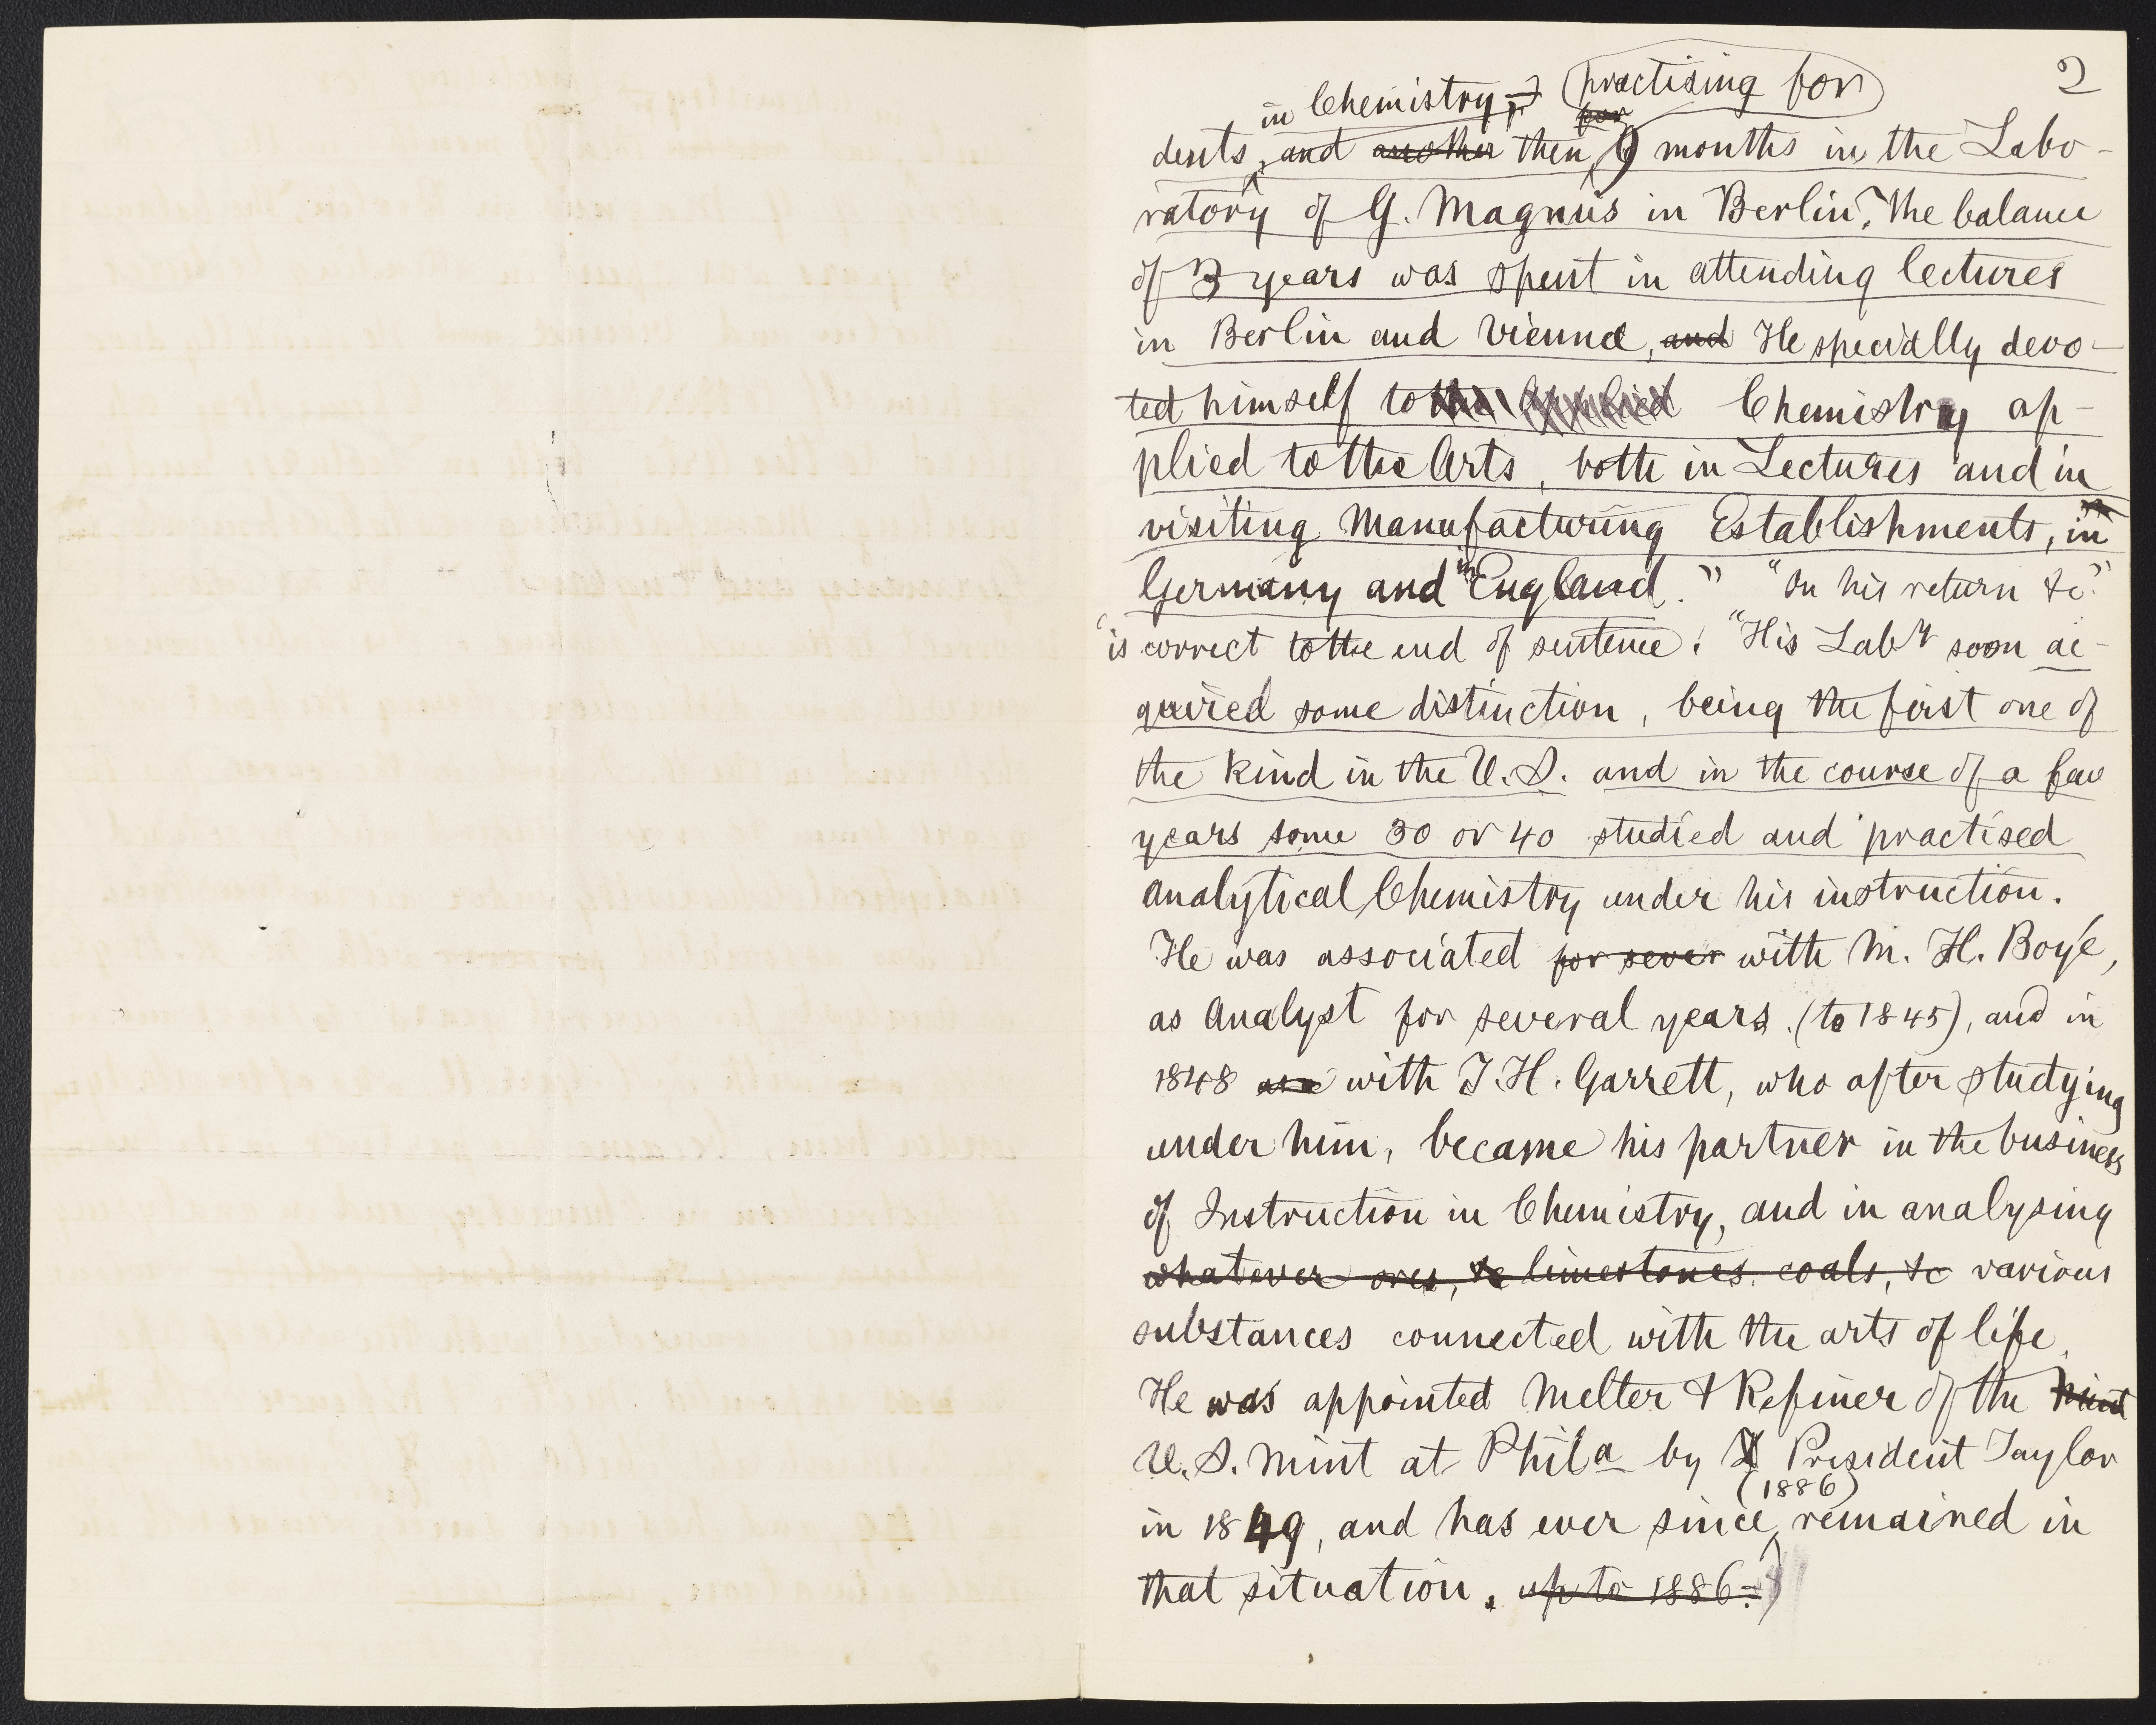 2
in Chemistry, practising for
for
dents, and another then 9 months in the Labo-
ratory of G. Magnus in Berlin. The balance
of 3 years was spent in attending lectures
in Berlin and Vienna, and He specially devo-
ted himself to the Chemistry ap-
plied to the Arts, both in Lectures and in
visiting Manufacturing Establishments, in
Germany and in England." "On his return &c."
is correct to the end of sentence. "His Laby soon ac-
quired some distinction, being the first one of
the kind in the U.S. and in the course of a few
years some 30 or 40 studied and practised
analytical Chemistry under his instruction.
He was associated for sever with M. H. Boyé,
as Analyst for several years (to 1845), and in
1848 with T. H. Garrett, who after studying
under him, became his partner in the business
of Instruction in Chemistry, and in analysing
whatever ores, &c limestones. coals, &c various
substances connected with the arts of life.
He was appointed Melter & Refiner of the Mint
U.S. Mint at Phila by President Taylor
(1886)
in 1849, and has ever since, remained in
that situation. up to 1886.)